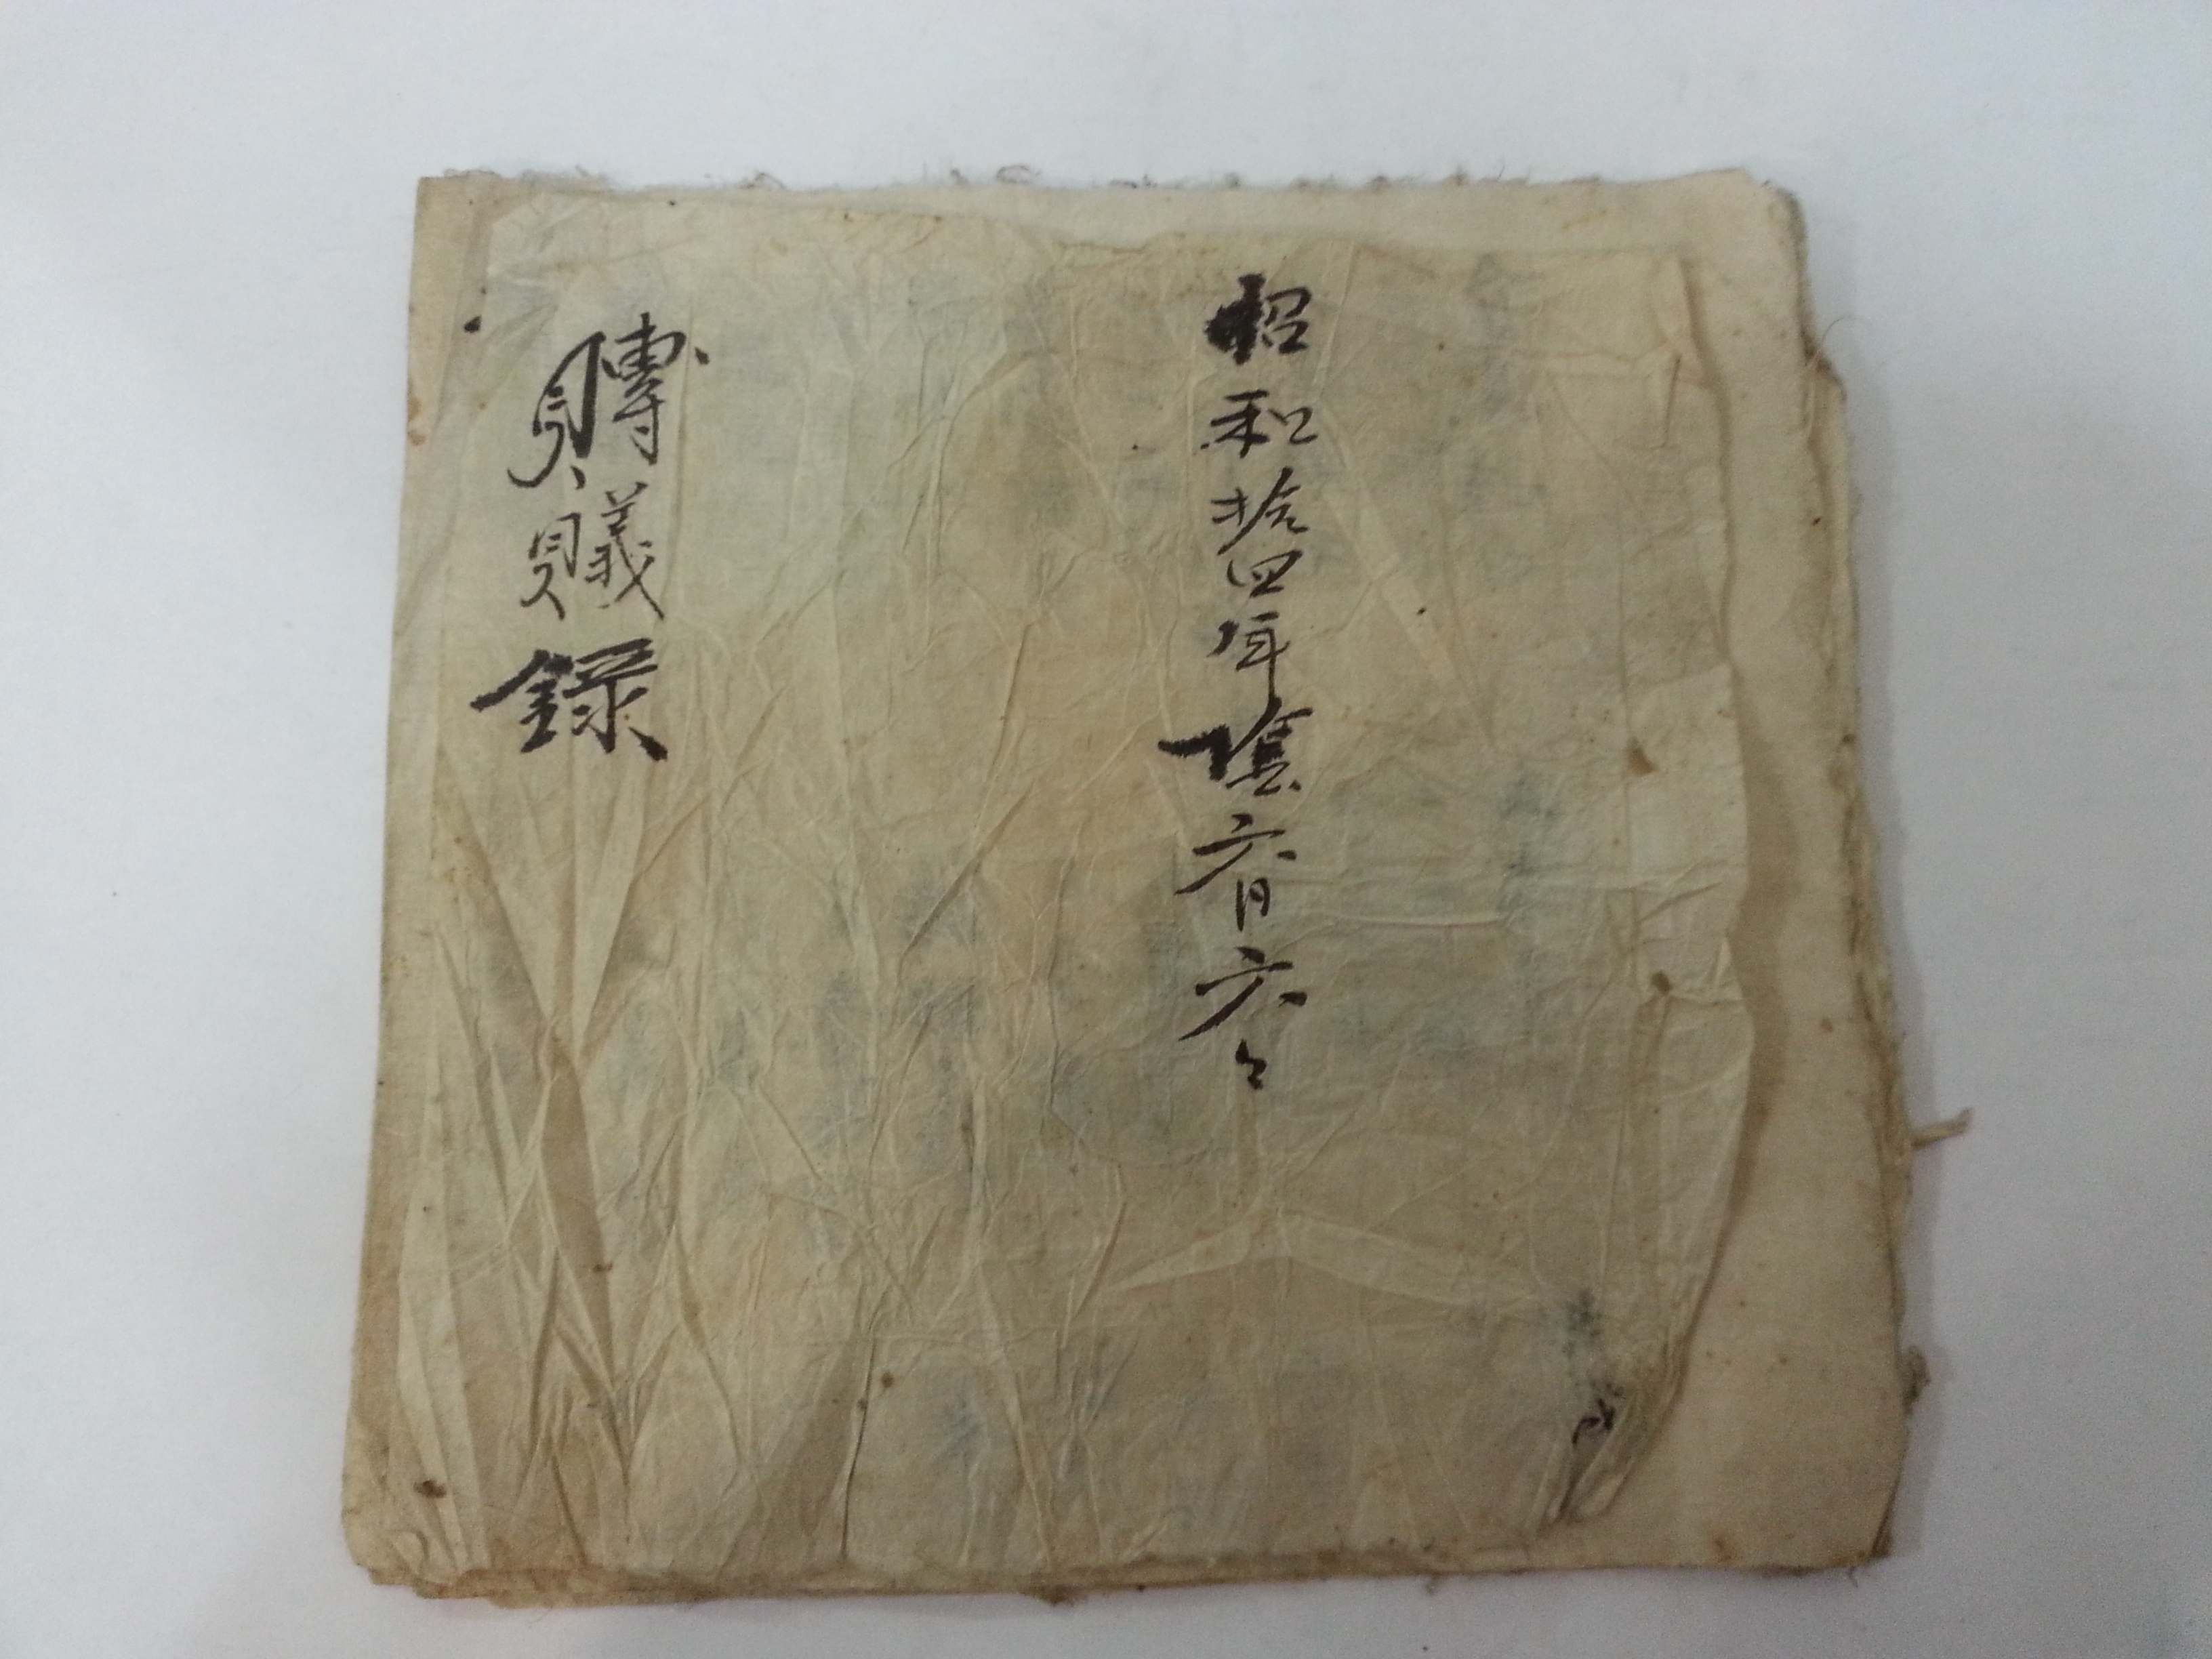 昭和拾四年陰六月六日
賻儀錄